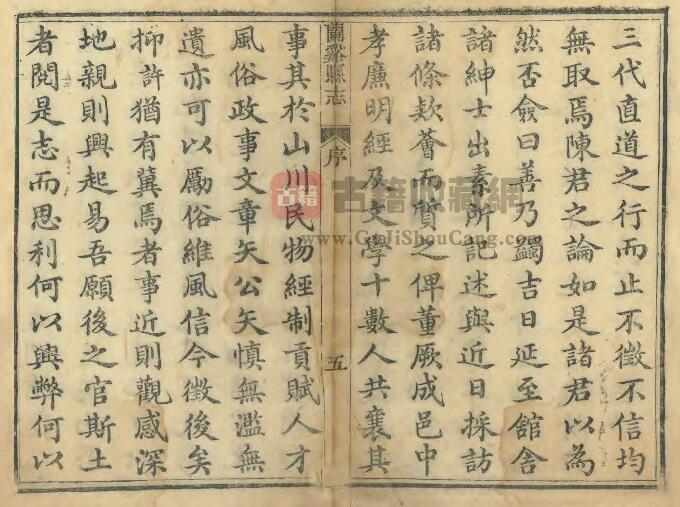 三代直道之行而止不徵不信均
無取焉陳君之論如是諸君以為
然否僉曰善乃蠲吉日延至舘舍
諸紳士出素所記述與近日採訪
諸條欵薈而質之俾董厥成邑中
孝廉明經及文學十數人共襄其
蘭谿縣志
序
五
事其於山川民物經制貢賦人才
風俗政事文章矢公矢慎無濫無
遺亦可以勵俗維風信今徵後矣
抑許猶有冀焉者事近則觀感深
地親則興起易吾願後之官斯土
者閱是志而思利何以興弊何以
古籍
古籍收藏網
www.GuJiShouCang.com